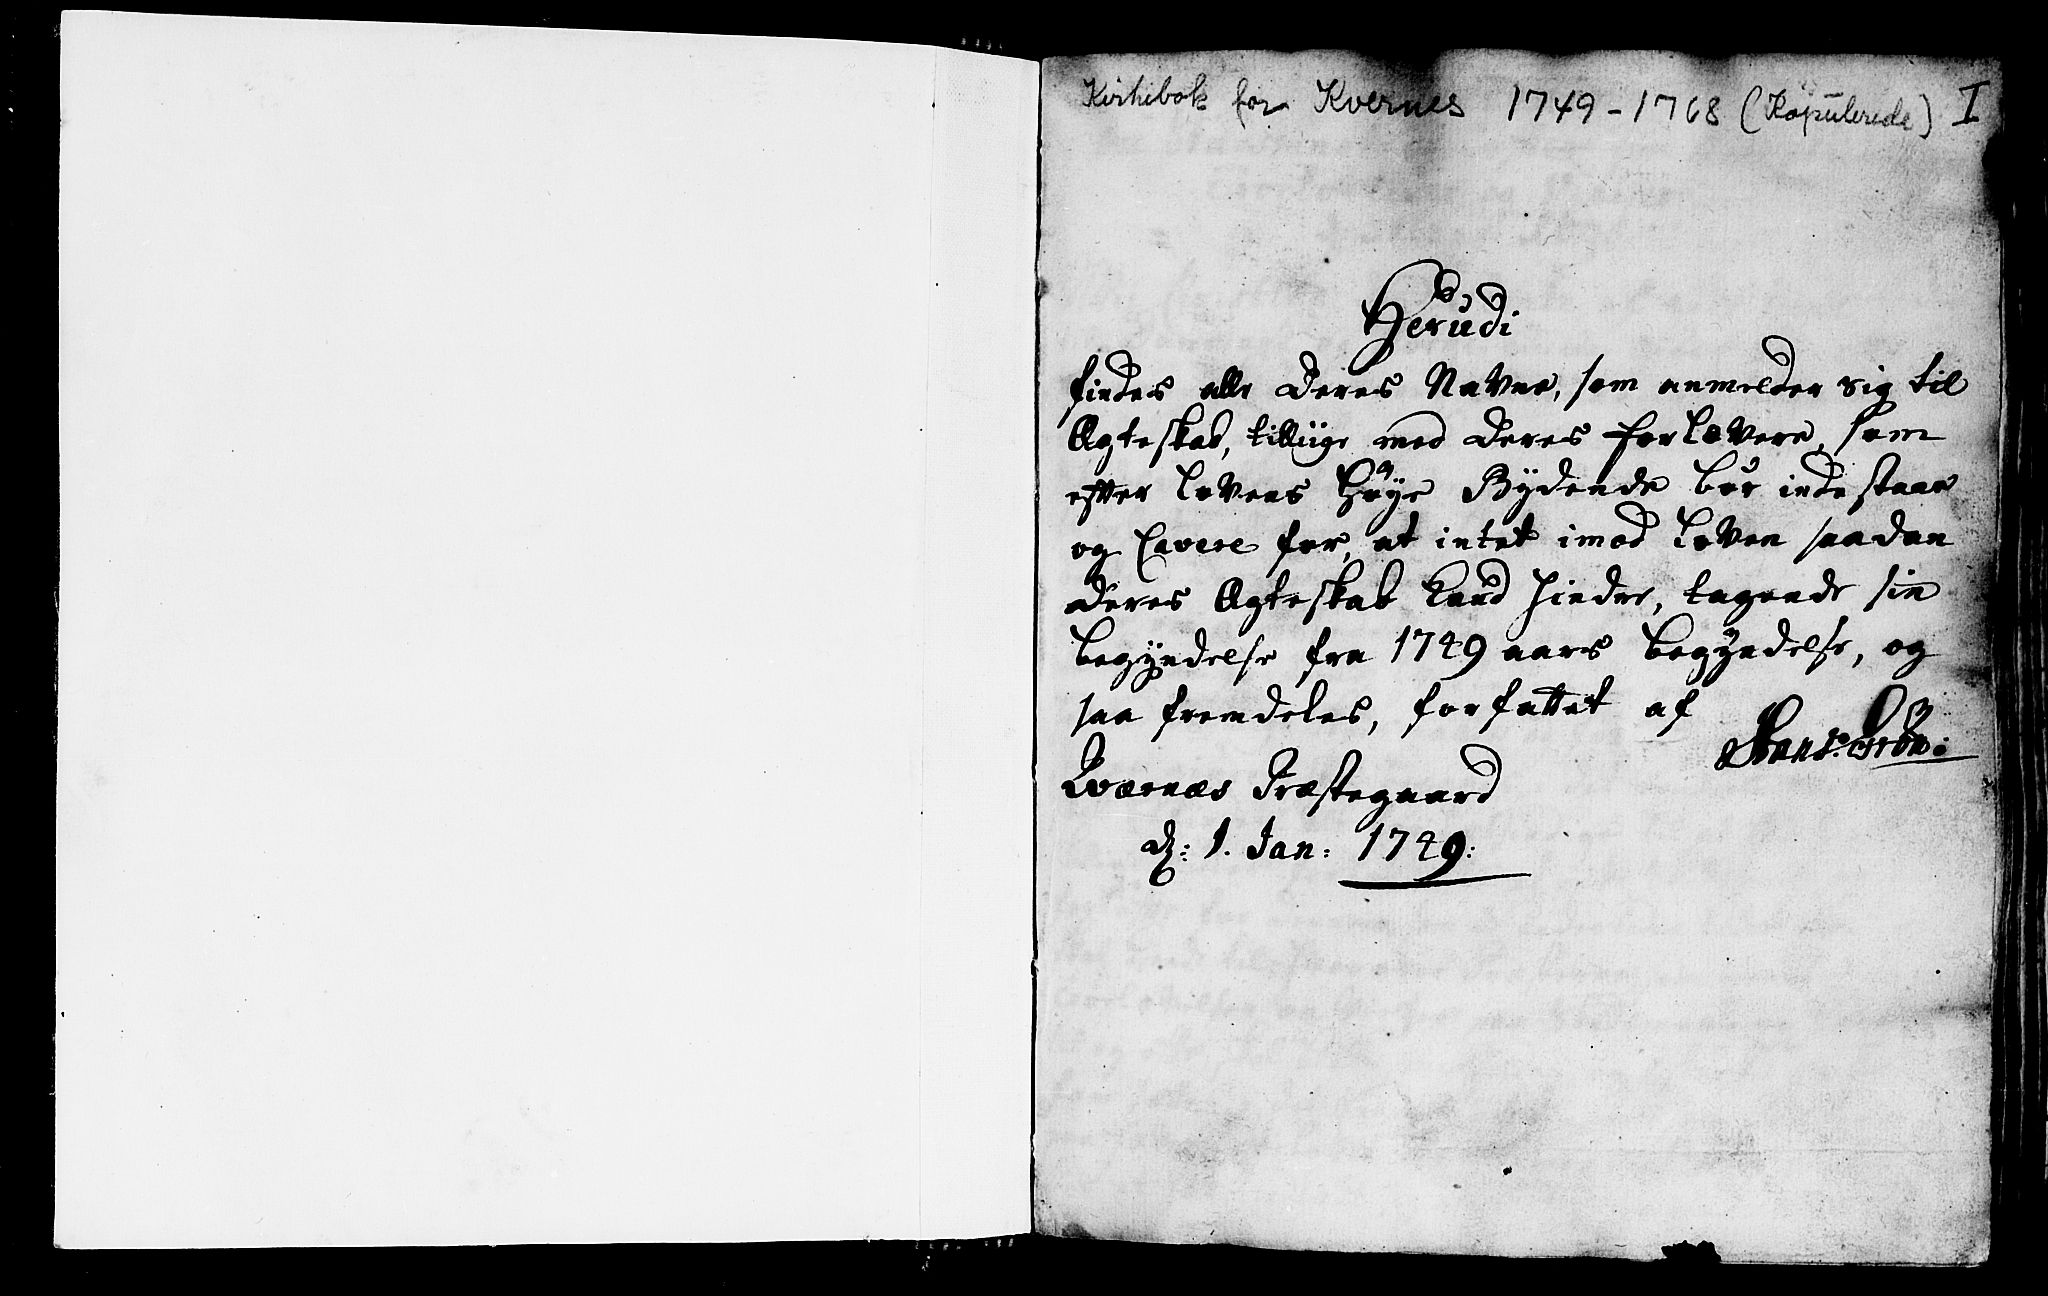 Kirkebok for Kvernes 1749-1768 (Kopulerede) I
Herudi
findes alle deres Navne, som anmelder sig til
Ægteskab, tilliige med deres forlovere, som
efter lovens høye Bydende bør indestaae
og Cavere for, at intet imod loven saadan
deres Ægteskab kand hindre, tagende sin
begyndelse fra 1749 aars begyndelse, og
saa fremdeles, forfattet af
Kværnæs Præstegaard
d: 1. Jan: 1749: